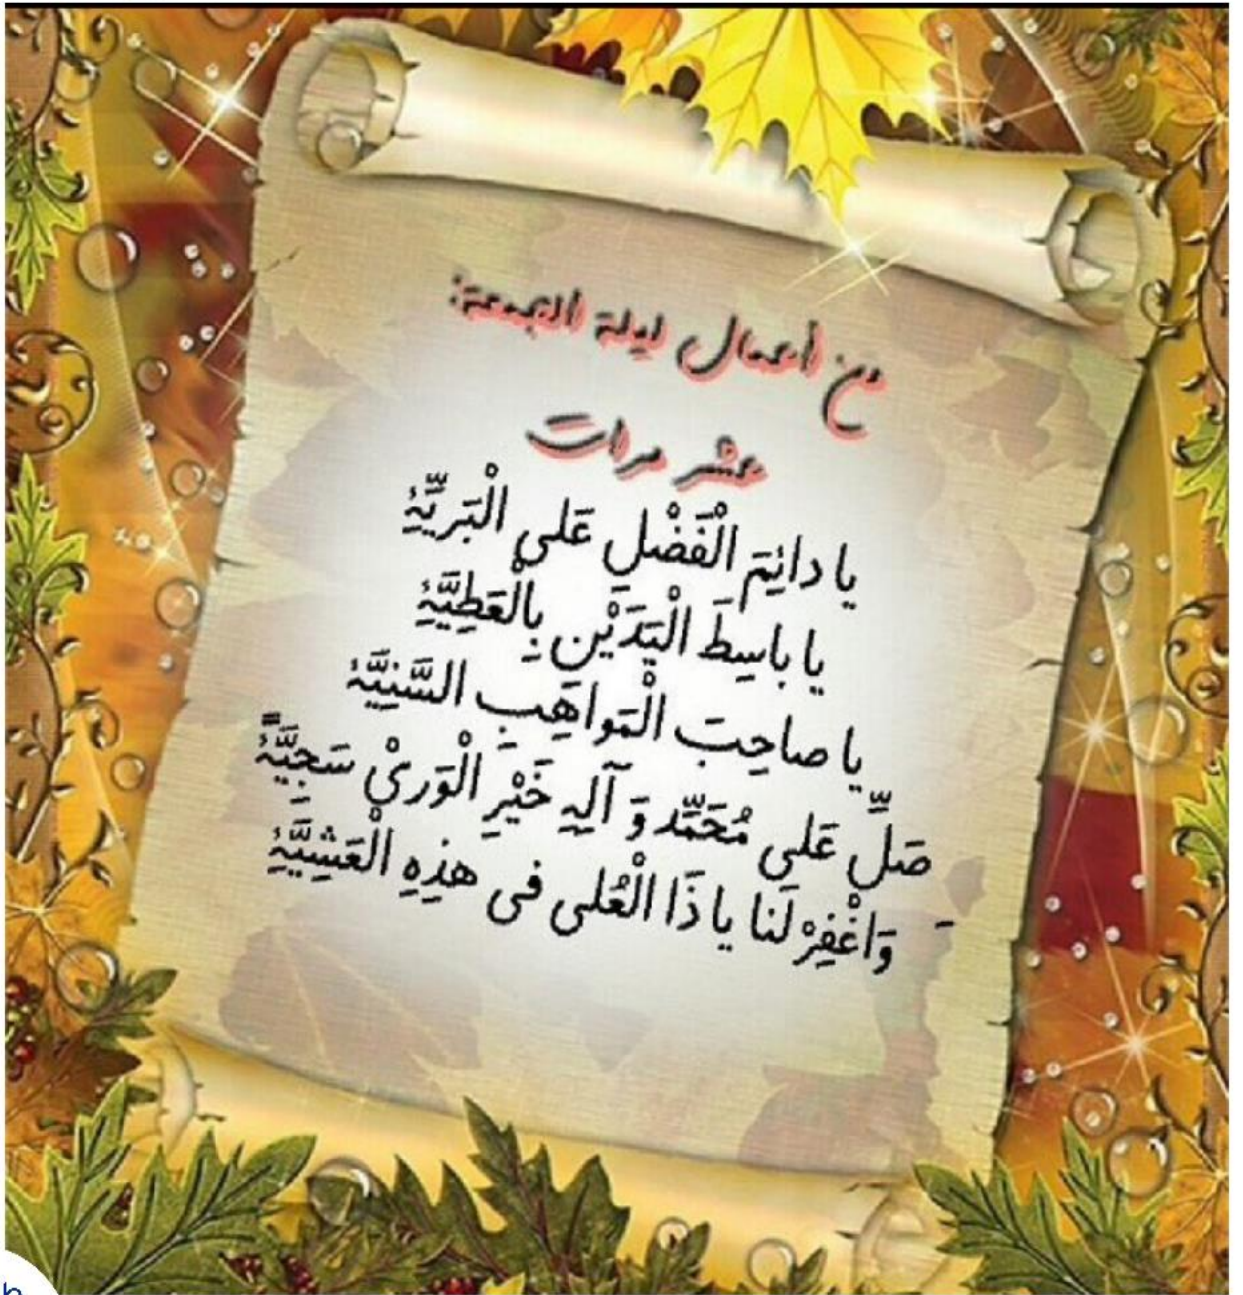 من أعمال ليلة الجمعة:
عشر مرات
يا دائِمَ الْفَضْلِ عَلى الْبَريِّةِ
يا باسِطَ الْيَدَيْنِ بِالْعَطِيَّةِ
يا صاحِبَ الْمَواهِبِ السَّنِيَّةِ
صَلِّ عَلى مُحَمَّد وَ آلِهِ خَيْرِ الْوَرىْ سَجِيَّةً
وَاغْفِرْ لَنا يا ذَا الْعُلى فى هذِهِ الْعَشِيَّةِ